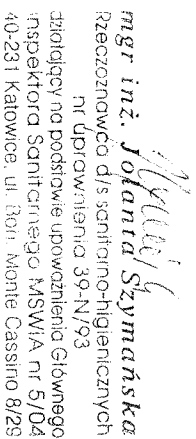 mgr inż. Jolanta Szymańska
Rzeczoznawca d/s sanitarno-higienicznych
nr uprawnienia 39-N/93
działający na podstawie upoważnienia Głównego
Inspektora Sanitarnego MSWiA nr 5/04
40-231 Katowice, ul. Boh. Monte Cassino 8/29